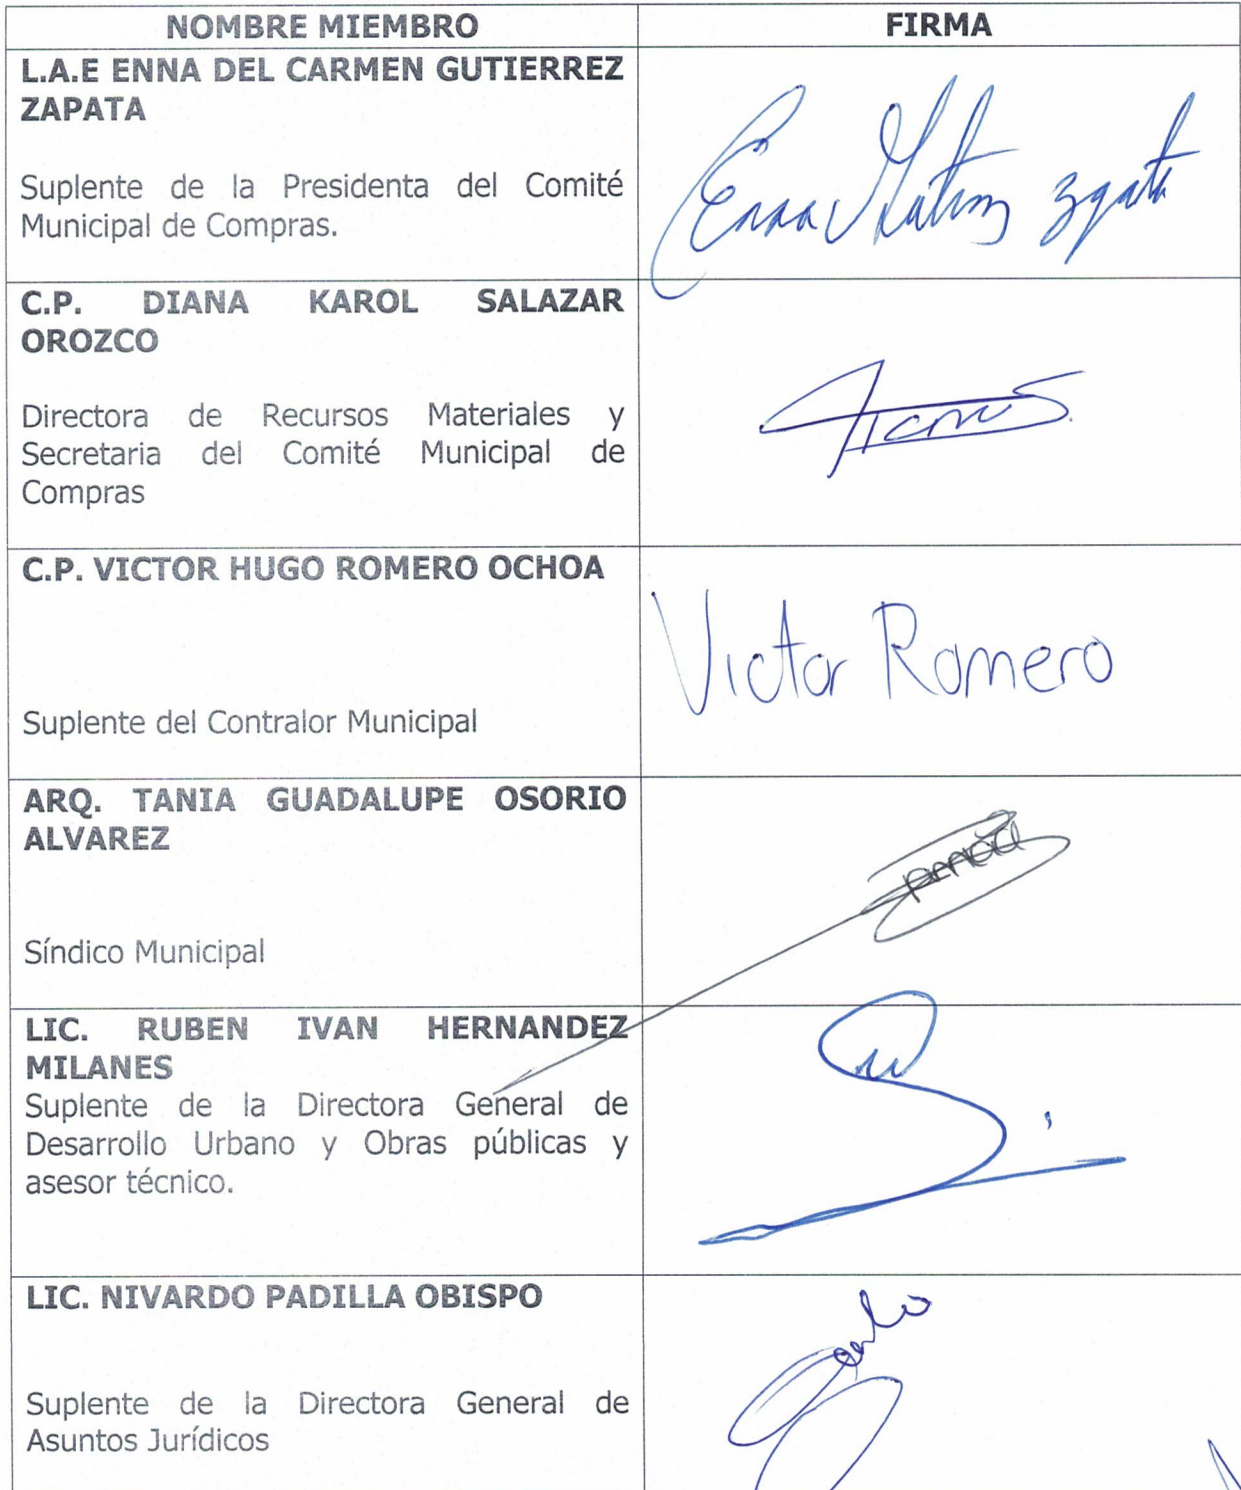 NOMBRE MIEMBRO
FIRMA
L.A.E ENNA DEL CARMEN GUTIERREZ
ZAPATA
Suplente de la Presidenta del Comité
Municipal de Compras.
Enna Zapata
C.P. DIANA KAROL SALAZAR
OROZCO
Directora de Recursos Materiales y
Secretaria del Comité Municipal de
Compras
C.P. VICTOR HUGO ROMERO OCHOA
Suplente del Contralor Municipal
Victor Romero
ARQ. TANIA GUADALUPE OSORIO
ALVAREZ
Síndico Municipal
LIC. RUBEN IVAN HERNANDEZ
MILANES
Suplente de la Directora General de
Desarrollo Urbano y Obras públicas y
asesor técnico.
LIC. NIVARDO PADILLA OBISPO
Suplente de la Directora General de
Asuntos Jurídicos